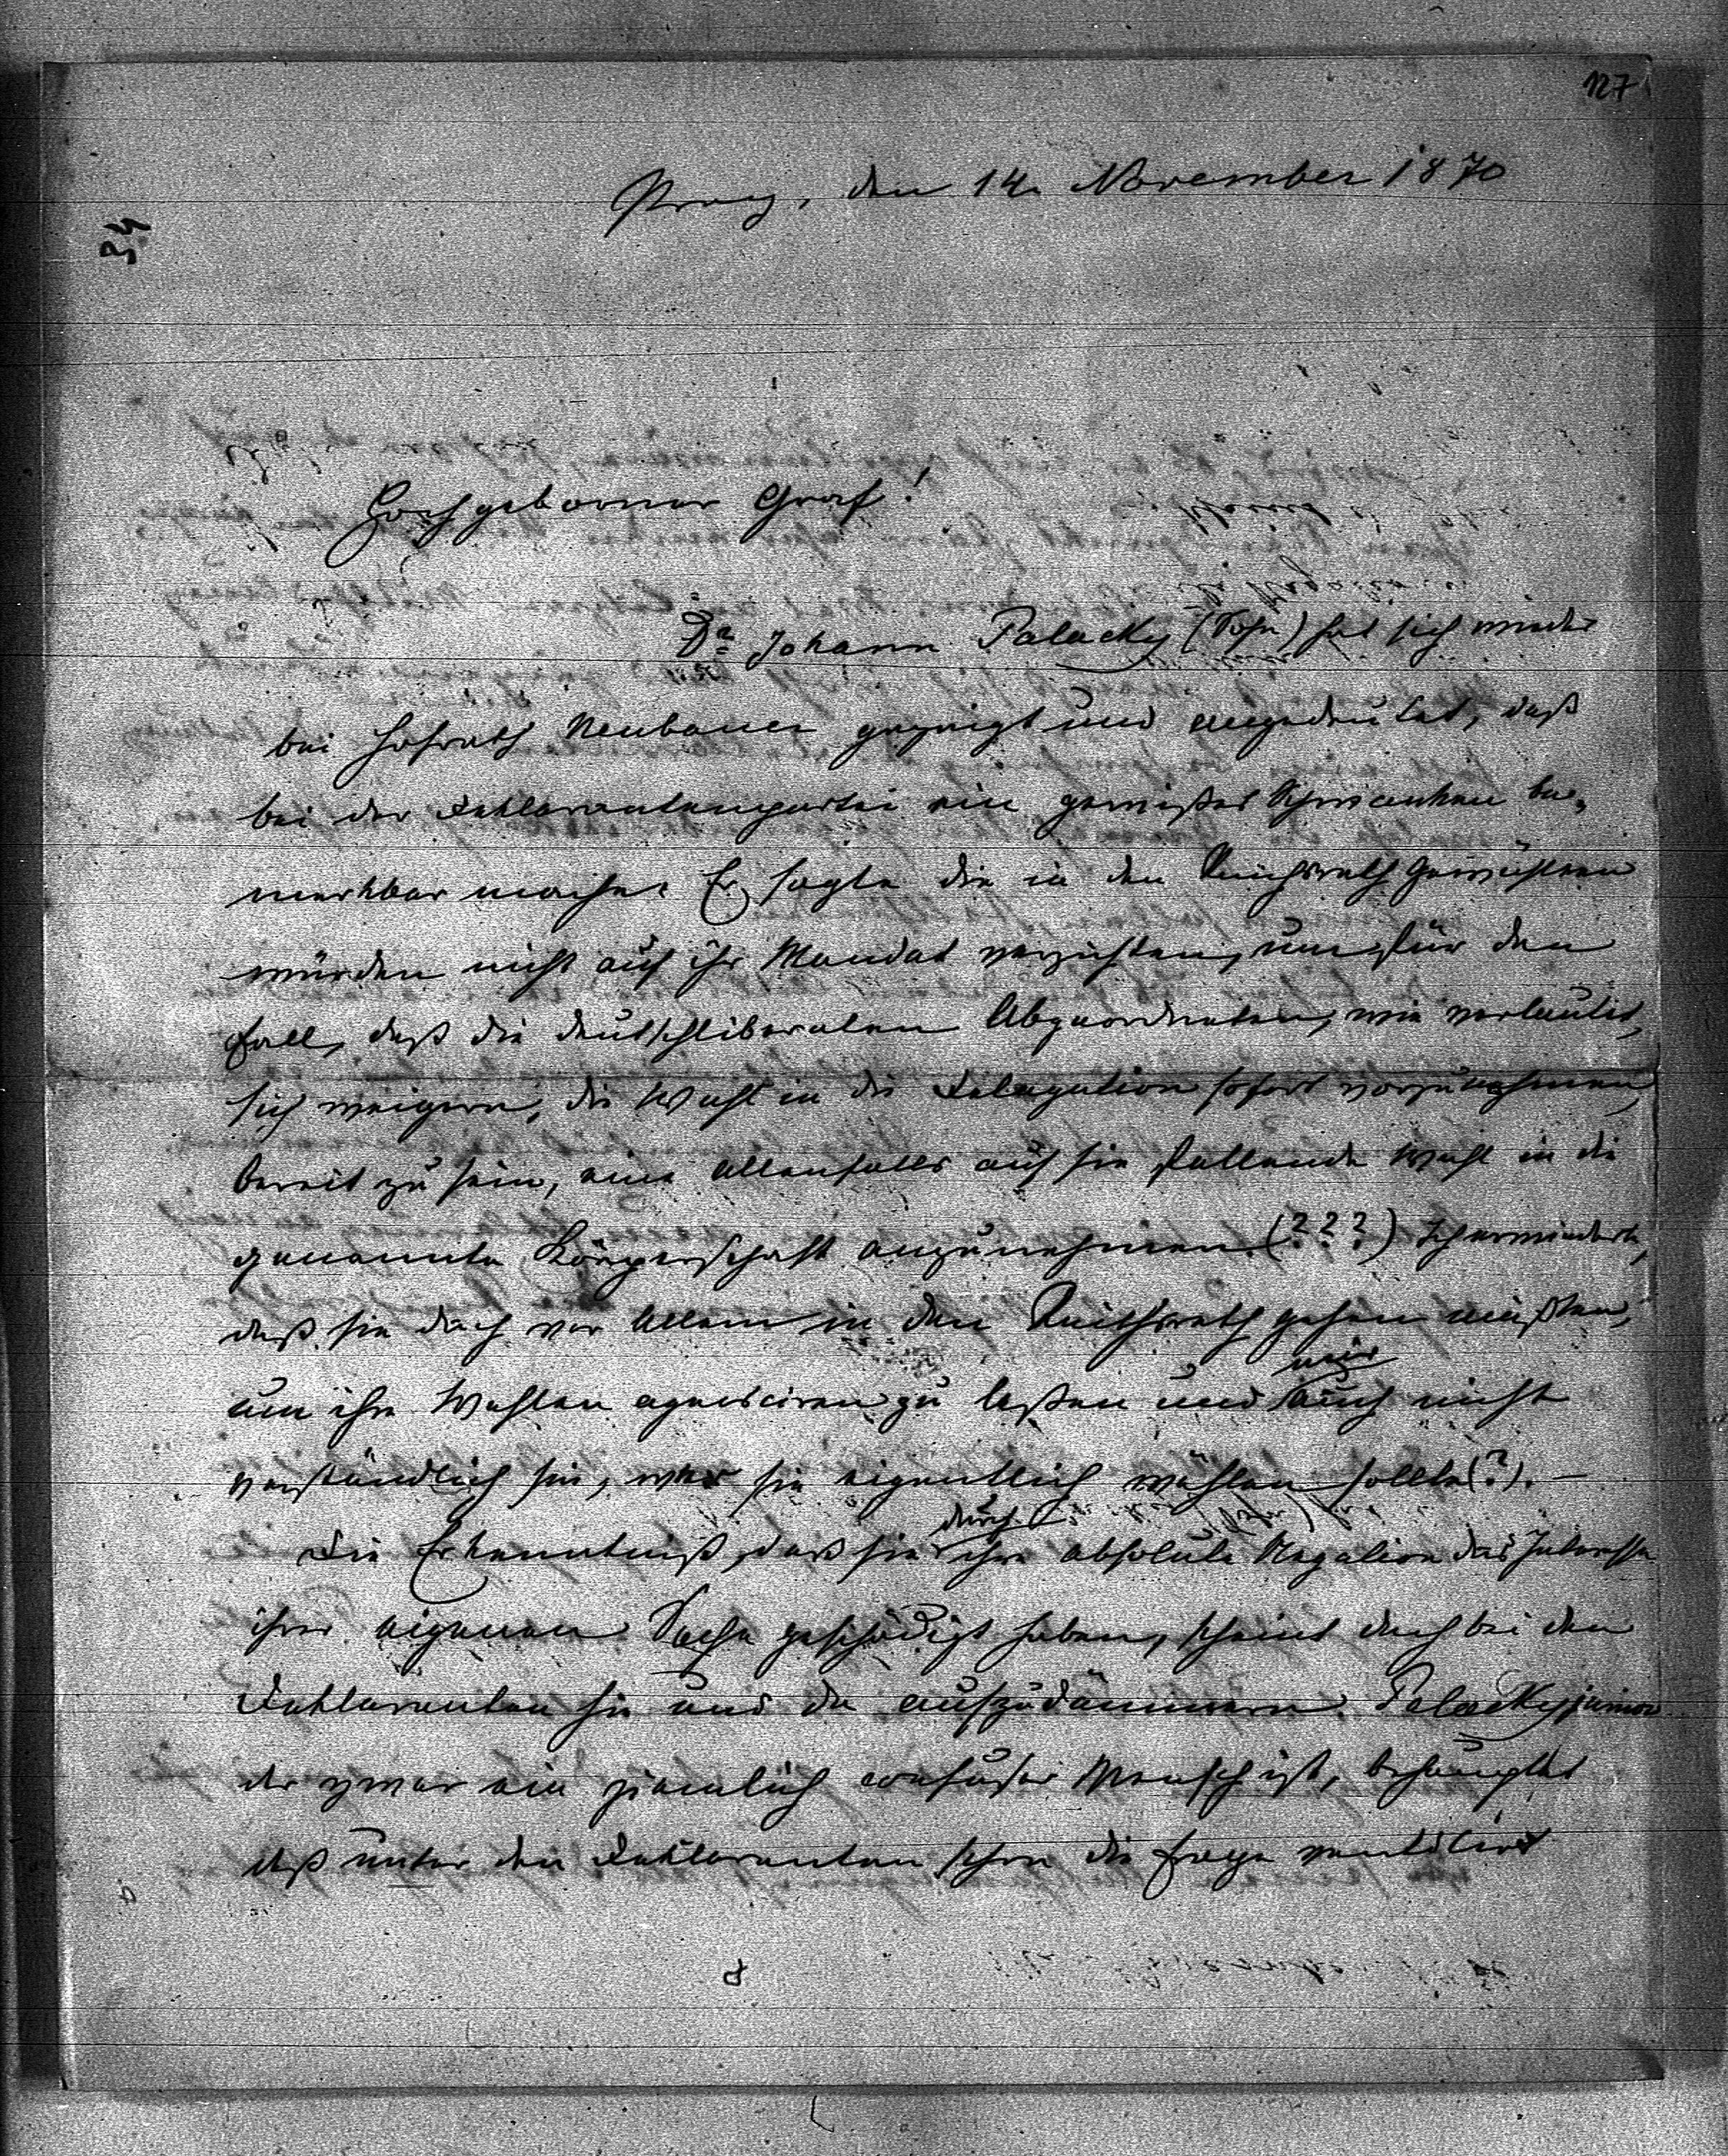 127
Prag, den 14. November 1870
34
Hochgeborner Graf!
Dr Johann Palacky (Sohn) hat sich wieder
bei Hofrath Neubauer gezeigt und angedeutet, daß
bei der Deklarantenpartei ein gewißes Schwanken be-
merkbar mache. Er sagte die in den Reichsrath Gewählten
würden nicht auf ihr Mandat verzichten, um für den
Fall, daß die deutschliberalen Abgeordneten, wie verlautet,
sich weigern, die Wahl in die Delegation sofort vorzunehmen,
bereit zu sein, eine allenfalls auf sie fallende Wahl in die
genannte Körperschaft anzunehmen (???) Ich erwiederte,
daß sie doch vor Allem in den Reichsrath gehen müßten,
um ihre Wahlen agnosciren zu laßen und mir auch nicht
verständlich sei, wer sie eigentlich wählen sollte (?). —
Die Erkenntniß, daß sie durch ihre absolute Negation das Interesse
ihrer eigenen Sache geschädigt haben, scheint doch bei den
Deklaranten hie und da aufzudämmern. Palacky junior
der zwar ein ziemlich confuser Mensch ist, behauptet
daß unter den Deklaranten schon die Frage ventilirt